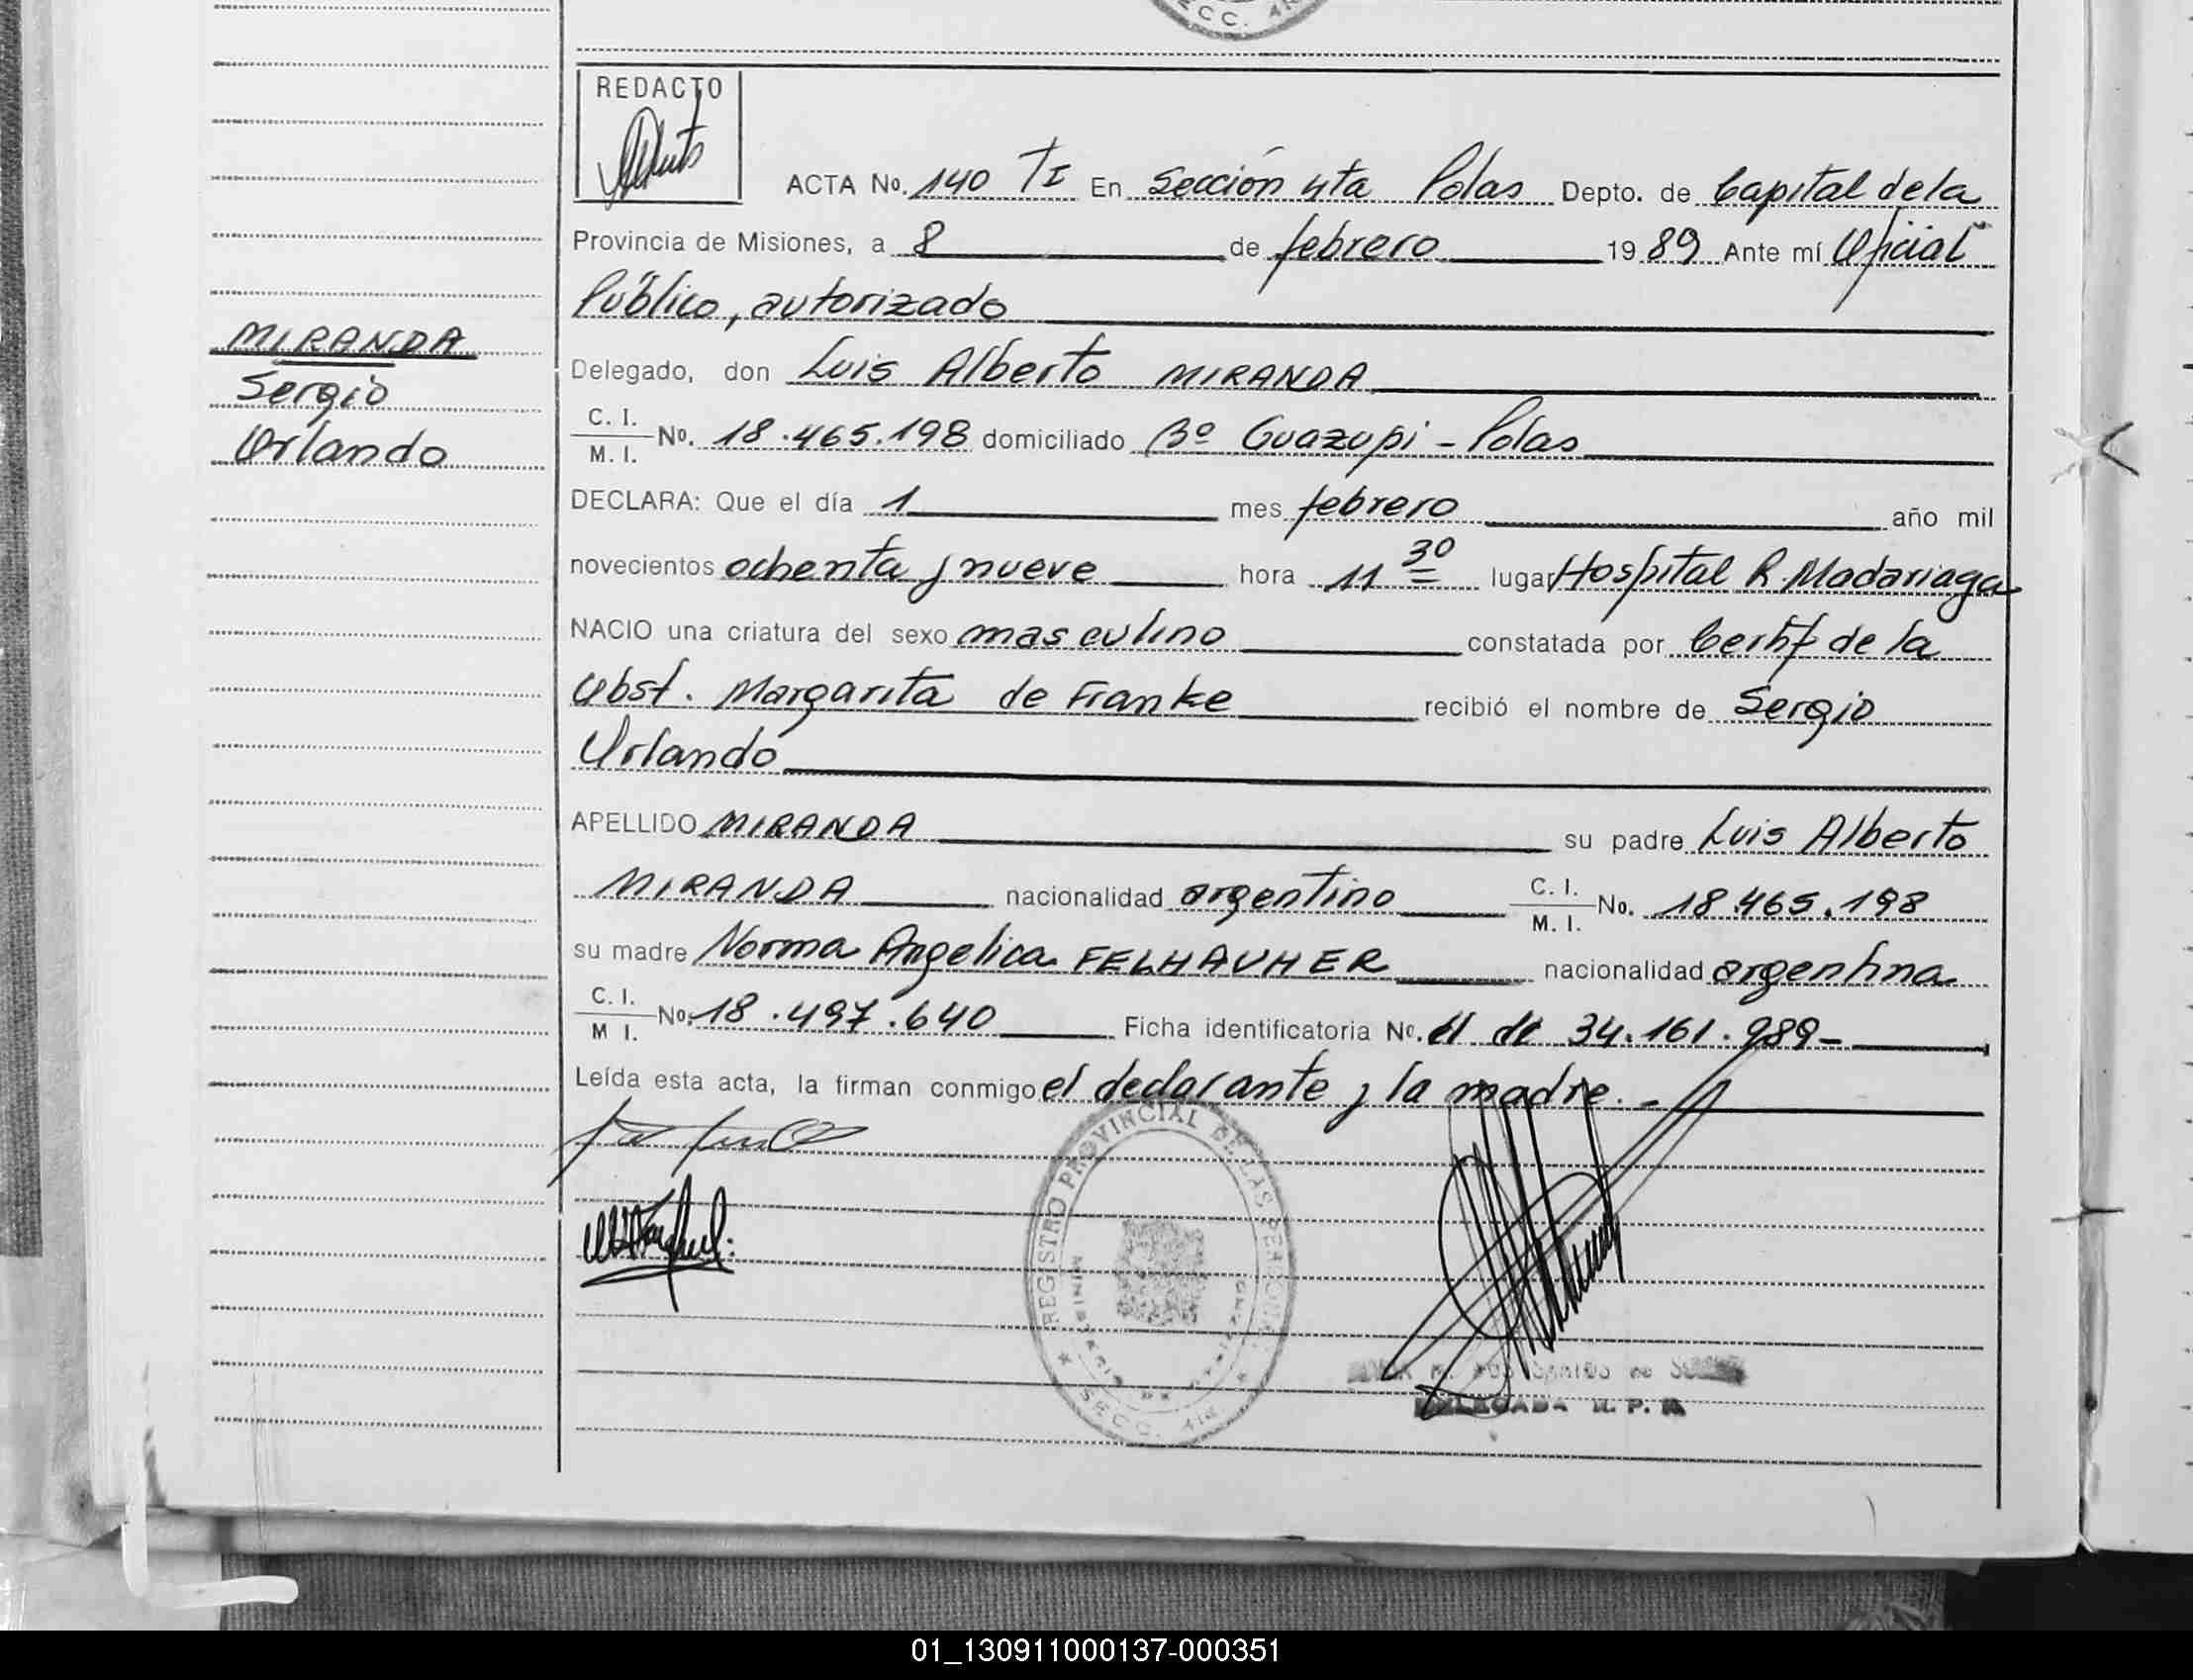 SECC. 4TA
REDACTO
ACTA No. 140 TI En Sección 4ta Pdas Depto. de Capital de la
Provincia de Misiones, a 8 de febrero 1989 Ante mí Oficial
Público, autorizado
MIRANDA
Sergio
Orlando
Delegado, don Luis Alberto MIRANDA
C. I.
M. I. No. 18.465.198 domiciliado Bº Guazupi - Pdas
DECLARA: Que el día 1 mes febrero año mil
novecientos ochenta y nueve hora 11 30 lugar Hospital R. Madariaga
NACIO una criatura del sexo masculino constatada por Certif de la
Obst. Margarita de Franke recibió el nombre de Sergio
Orlando
APELLIDO MIRANDA su padre Luis Alberto
MIRANDA nacionalidad argentino C. I. M. I. No. 18.465.198
su madre Norma Angelica FELHAUHER nacionalidad argentina
C. I.
M I. No. 18.497.640 Ficha identificatoria No. el de 34.161.989-
Leída esta acta, la firman conmigo el declarante y la madre.-
REGISTRO PROVINCIAL DE LAS PERSONAS
SECC. 4TA
DOS SANTOS de
DELEGADA R. P. P.
01_130911000137-000351